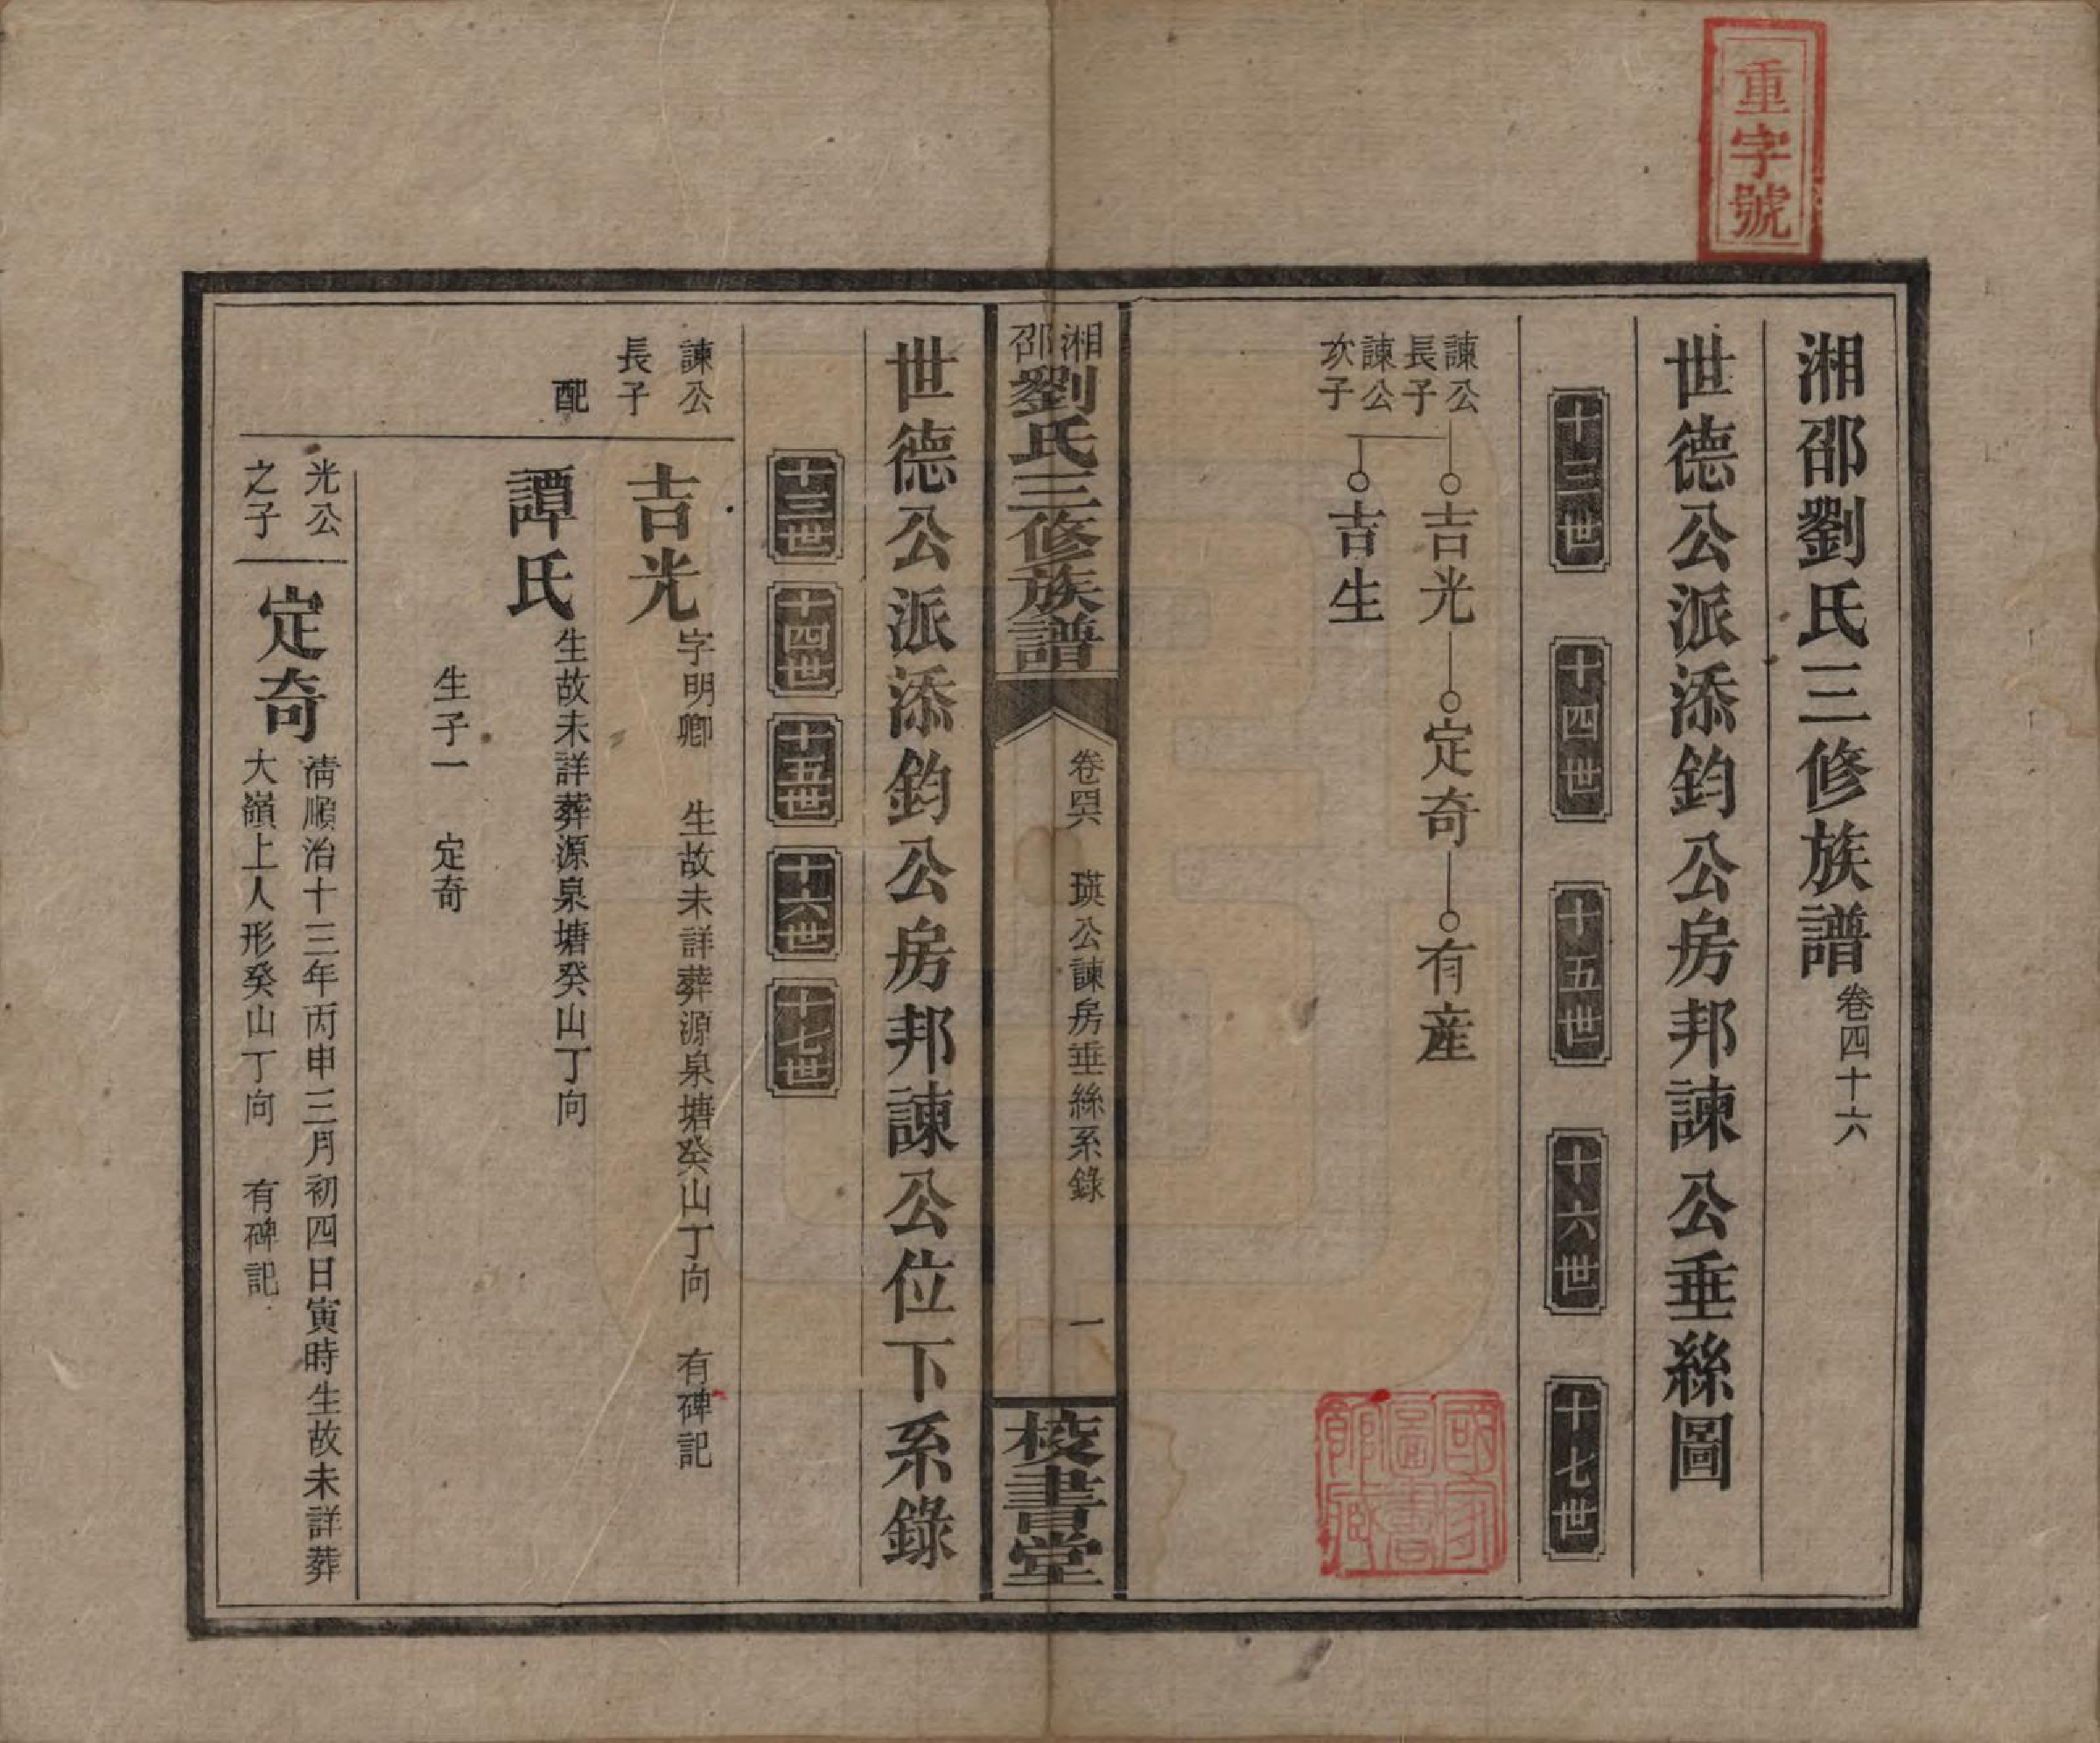 重字號
湘邵劉氏三修族譜卷四十六
世德公派添鈞公房邦諫公垂絲圖
十三世 十四世 十五世 十六世 十七世
諫公長子 吉光 定奇 有産
諫公次子 吉生
國家圖書館藏
湘邵劉氏三修族譜
卷四六 瑛公諫房垂絲系錄 一
校書堂
世德公派添鈞公房邦諫公位下系錄
十三世 十四世 十五世 十六世 十七世
諫公長子 吉光 字明卿 生故未詳葬源泉塘癸山丁向 有碑記
配 譚氏 生故未詳葬源泉塘癸山丁向
生子一 定奇
光公之子 定奇 清順治十三年丙申三月初四日寅時生故未詳葬
大嶺上人形癸山丁向 有碑記